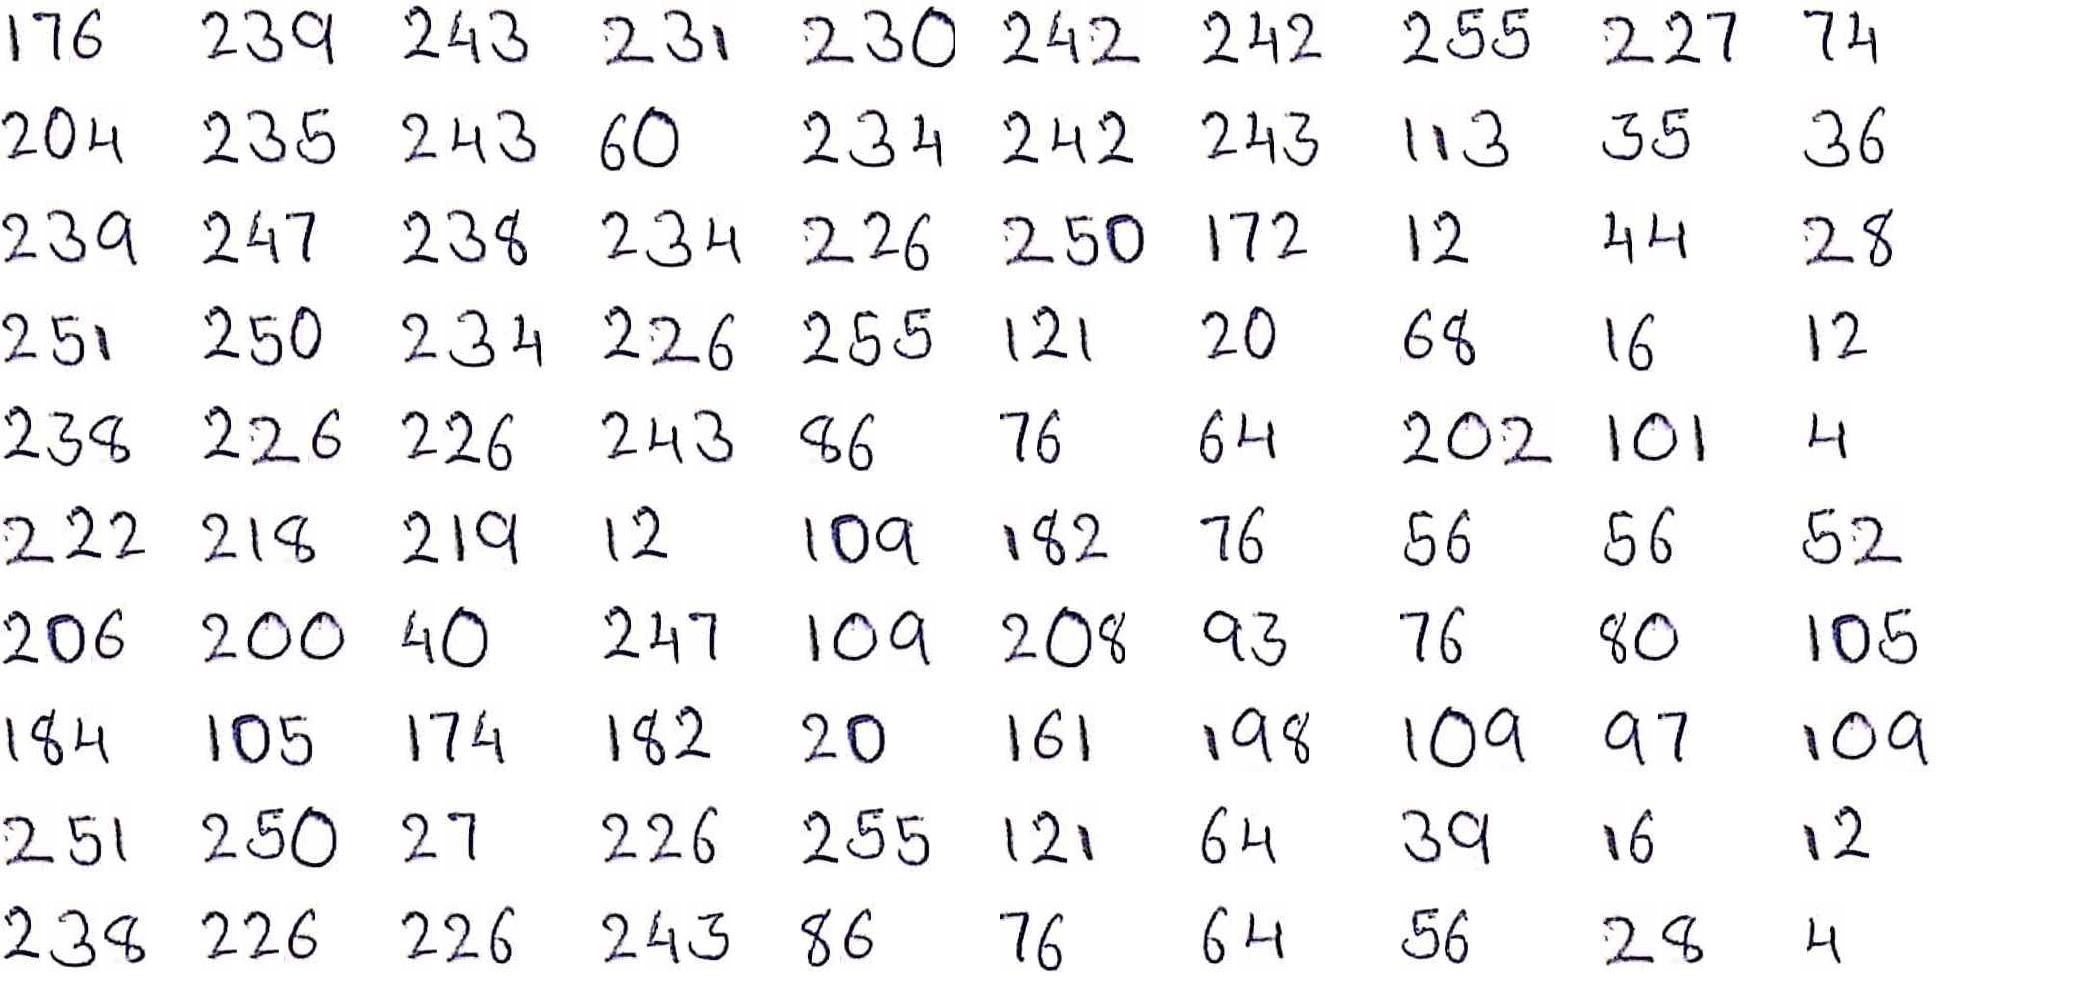 176 239 243 231 230 242 242 255 227 74
204 235 243 60 234 242 243 113 35 36
239 247 238 234 226 250 172 12 44 28
251 250 234 226 255 121 20 68 16 12
238 226 226 243 86 76 64 202 101 4
222 218 219 12 109 182 76 56 56 52
206 200 40 247 109 208 93 76 80 105
184 105 174 182 20 161 198 109 97 109
251 250 27 226 255 121 64 39 16 12
238 226 226 243 86 76 64 56 28 4